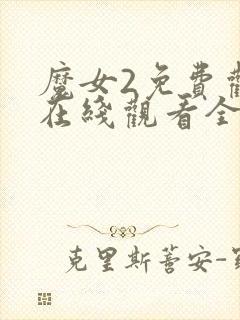 魔女2免費觀
在綫觀看全
克里斯蒂安-